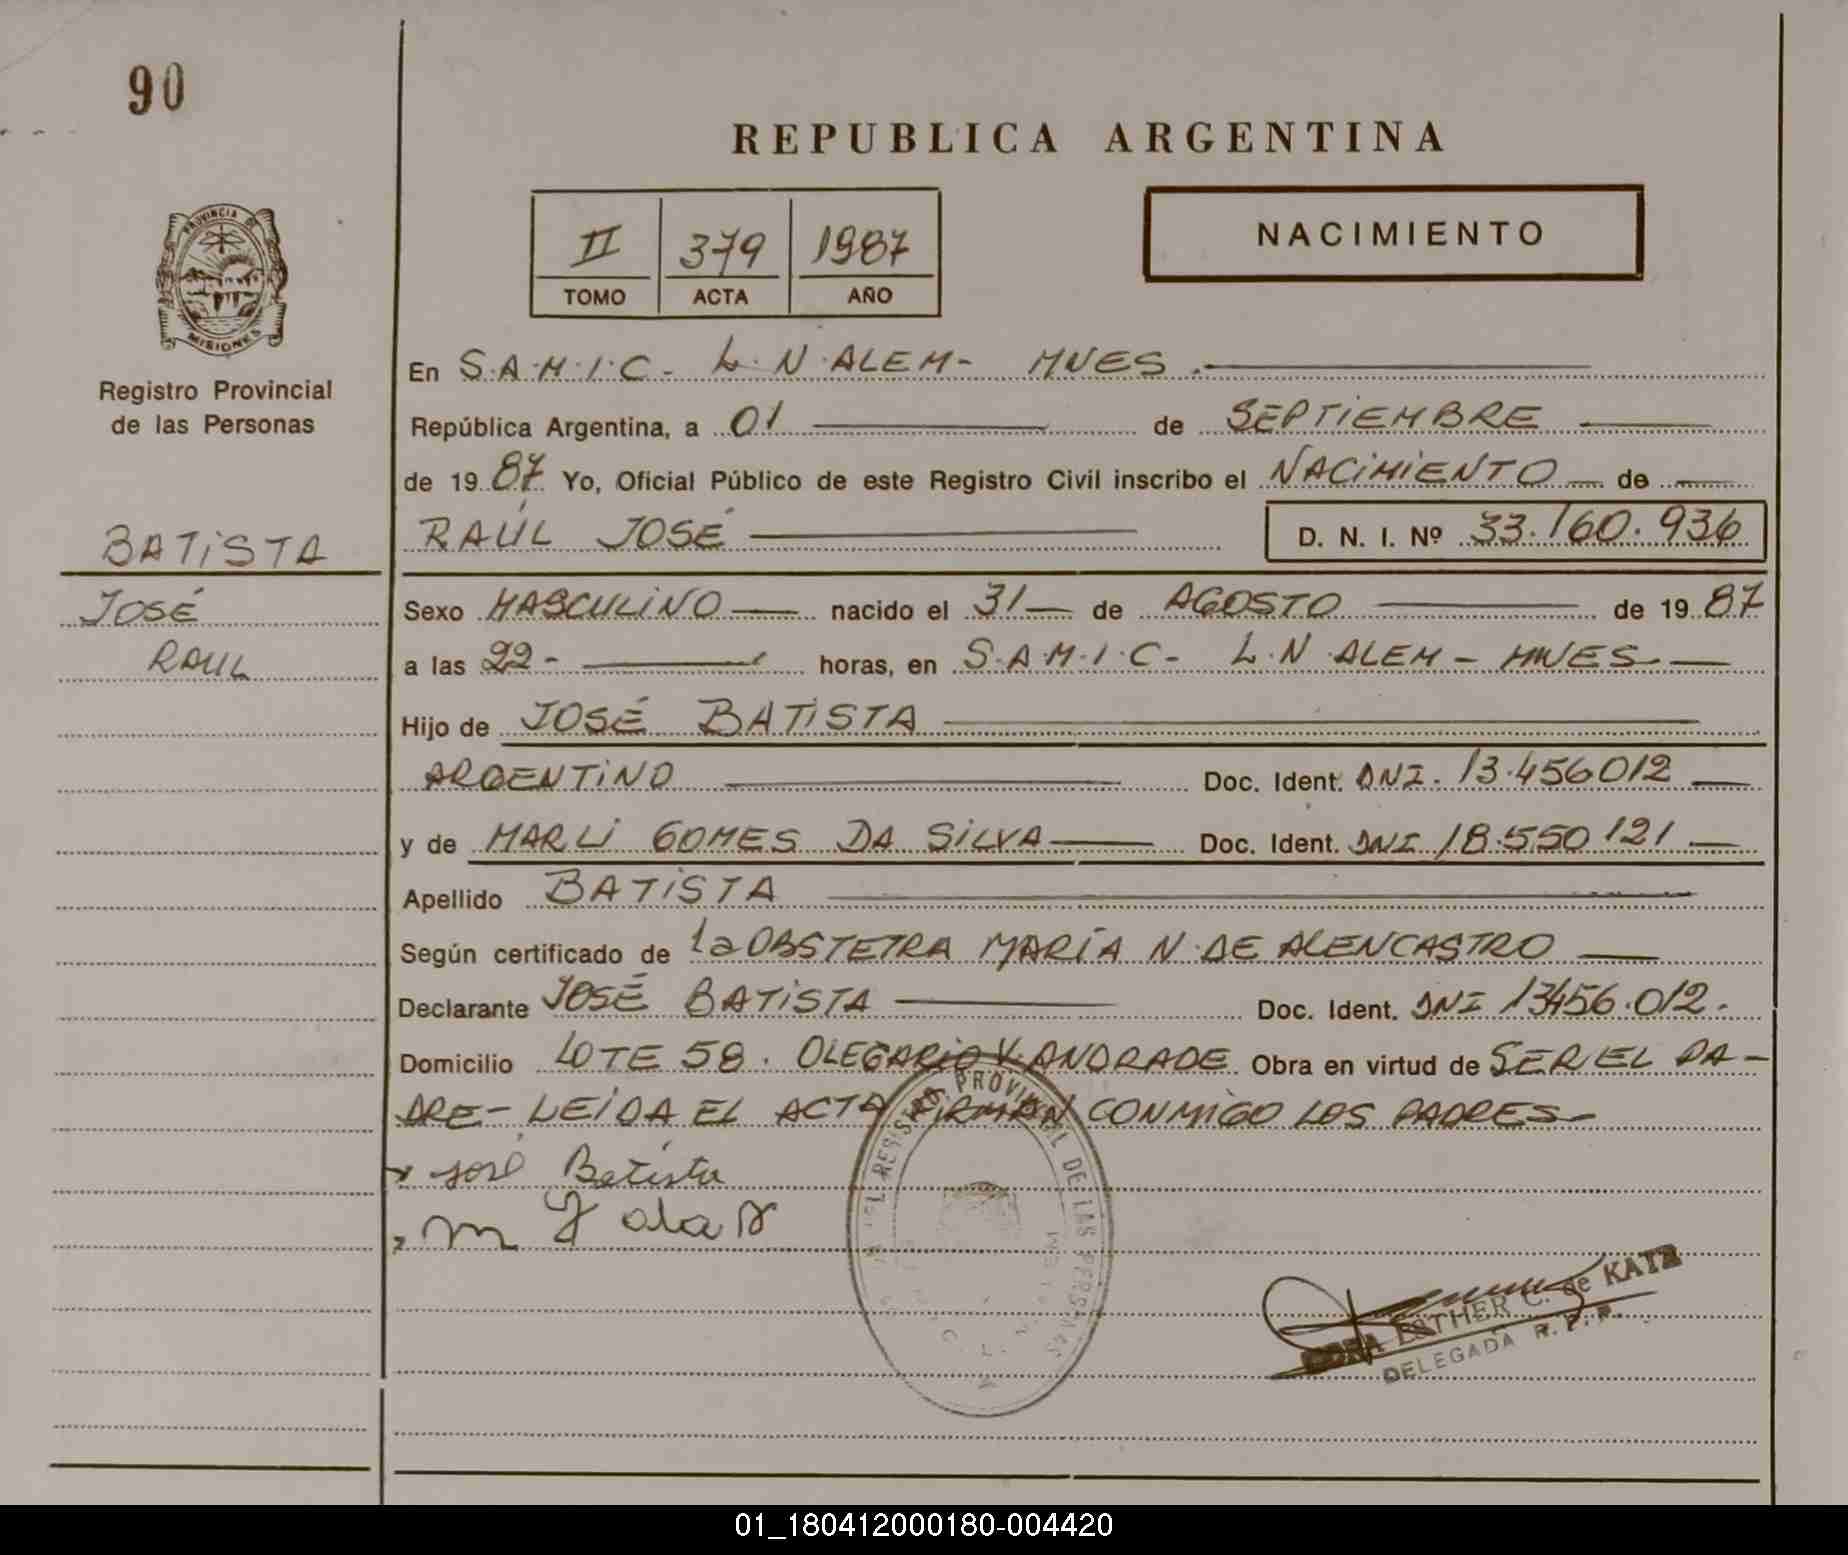 90
REPUBLICA ARGENTINA
II 379 1987
TOMO ACTA AÑO
NACIMIENTO
PROVINCIA DE
MISIONES
Registro Provincial
de las Personas
BATISTA
JOSÉ
RAUL
En S.A.M.I.C. L.N.ALEM- MNES.
República Argentina, a 01 de SEPTIEMBRE
de 1987 Yo, Oficial Público de este Registro Civil inscribo el NACIMIENTO de
RAÚL JOSÉ D. N. I. Nº 33.160.936
Sexo MASCULINO nacido el 31 de AGOSTO de 1987
a las 22- horas, en S.A.M.I.C- L.N ALEM - MNES-
Hijo de JOSÉ BATISTA
ARGENTINO Doc. Ident. DNI. 13.456012
y de MARLI GOMES DA SILVA Doc. Ident. DNI 18.550121
Apellido BATISTA
Según certificado de la OBSTETRA MARÍA N. DE ALENCASTRO
Declarante JOSÉ BATISTA Doc. Ident. DNI 13456.012.
Domicilio LOTE 58. OLEGARIO V. ANDRADE Obra en virtud de SER EL PA-
DRE- LEIDA EL ACTA FIRMAN CONMIGO LOS PADRES-
José Batista
REGISTRO PROVINCIAL DE LAS PERSONAS
ESTHER C. de KATZ
DELEGADA R.P.P.
01_180412000180-004420